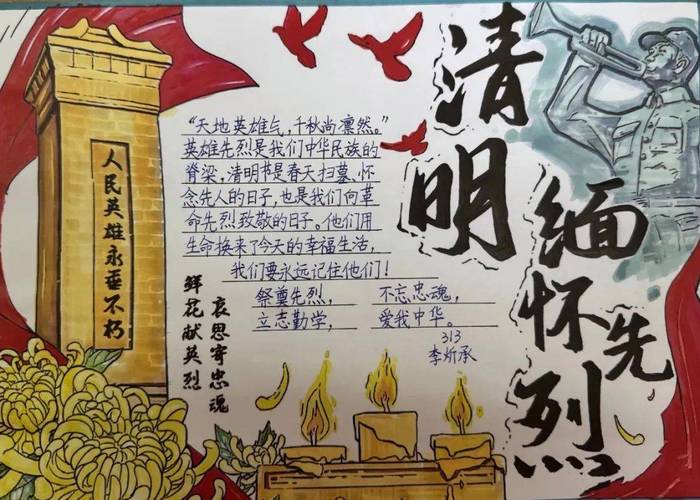 清明
缅怀先烈
人民英雄永垂不朽
“天地英雄气，千秋尚凛然。”
英雄先烈是我们中华民族的
脊梁，清明节是春天扫墓、怀
念先人的日子，也是我们向革
命先烈致敬的日子。他们用
生命换来了今天的幸福生活，
我们要永远记住他们！
祭奠先烈， 不忘忠魂，
立志勤学， 爱我中华。
313
李炘承
哀思寄忠魂
鲜花献英烈